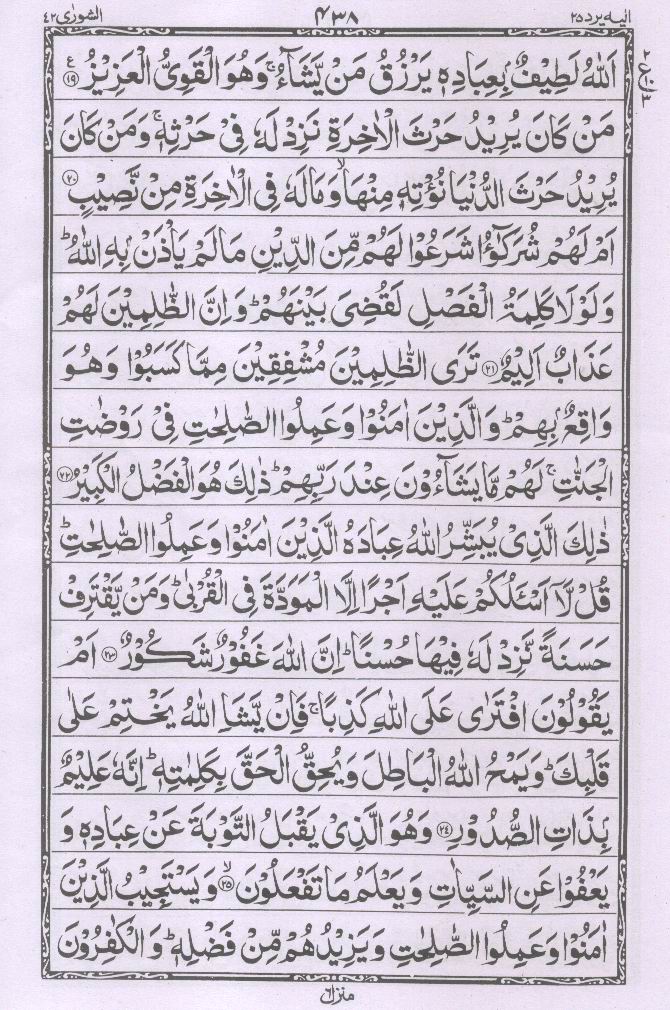 اليه يرد ٢٥ ۴۳۸ الشورى ٤٢
اَللّٰهُ لَطِيْفٌۢ بِعِبَادِهٖ يَرْزُقُ مَنْ يَّشَآءُ ۚ وَهُوَ الْقَوِيُّ الْعَزِيْزُ ࣖ ١٩
مَنْ كَانَ يُرِيْدُ حَرْثَ الْاٰخِرَةِ نَزِدْ لَهٗ فِيْ حَرْثِهٖ ۚ وَمَنْ كَانَ
يُرِيْدُ حَرْثَ الدُّنْيَا نُؤْتِهٖ مِنْهَا ۙ وَمَا لَهٗ فِي الْاٰخِرَةِ مِنْ نَّصِيْبٍ ٢٠
اَمْ لَهُمْ شُرَكٰٓؤُا شَرَعُوْا لَهُمْ مِّنَ الدِّيْنِ مَا لَمْ يَاْذَنْۢ بِهِ اللّٰهُ ؕ
وَلَوْلَا كَلِمَةُ الْفَصْلِ لَقُضِيَ بَيْنَهُمْ ؕ وَاِنَّ الظّٰلِمِيْنَ لَهُمْ
عَذَابٌ اَلِيْمٌ ٢١ تَرَى الظّٰلِمِيْنَ مُشْفِقِيْنَ مِمَّا كَسَبُوْا وَهُوَ
وَاقِعٌۢ بِهِمْ ؕ وَالَّذِيْنَ اٰمَنُوْا وَعَمِلُوا الصّٰلِحٰتِ فِيْ رَوْضٰتِ
الْجَنّٰتِ ۚ لَهُمْ مَّا يَشَآءُوْنَ عِنْدَ رَبِّهِمْ ؕ ذٰلِكَ هُوَ الْفَضْلُ الْكَبِيْرُ ٢٢
ذٰلِكَ الَّذِيْ يُبَشِّرُ اللّٰهُ عِبَادَهُ الَّذِيْنَ اٰمَنُوْا وَعَمِلُوا الصّٰلِحٰتِ ؕ
قُلْ لَّاۤ اَسْـَٔلُكُمْ عَلَيْهِ اَجْرًا اِلَّا الْمَوَدَّةَ فِي الْقُرْبٰى ؕ وَمَنْ يَّقْتَرِفْ
حَسَنَةً نَّزِدْ لَهٗ فِيْهَا حُسْنًا ؕ اِنَّ اللّٰهَ غَفُوْرٌ شَكُوْرٌ ٢٣ اَمْ
يَقُوْلُوْنَ افْتَرٰى عَلَى اللّٰهِ كَذِبًا ۚ فَاِنْ يَّشَاِ اللّٰهُ يَخْتِمْ عَلٰى
قَلْبِكَ ؕ وَيَمْحُ اللّٰهُ الْبَاطِلَ وَيُحِقُّ الْحَقَّ بِكَلِمٰتِهٖ ؕ اِنَّهٗ عَلِيْمٌۢ
بِذَاتِ الصُّدُوْرِ ٢٤ وَهُوَ الَّذِيْ يَقْبَلُ التَّوْبَةَ عَنْ عِبَادِهٖ وَ
يَعْفُوْا عَنِ السَّيِّاٰتِ وَيَعْلَمُ مَا تَفْعَلُوْنَ ۙ ٢٥ وَيَسْتَجِيْبُ الَّذِيْنَ
اٰمَنُوْا وَعَمِلُوا الصّٰلِحٰتِ وَيَزِيْدُهُمْ مِّنْ فَضْلِهٖ ؕ وَالْكٰفِرُوْنَ
منزل ٦